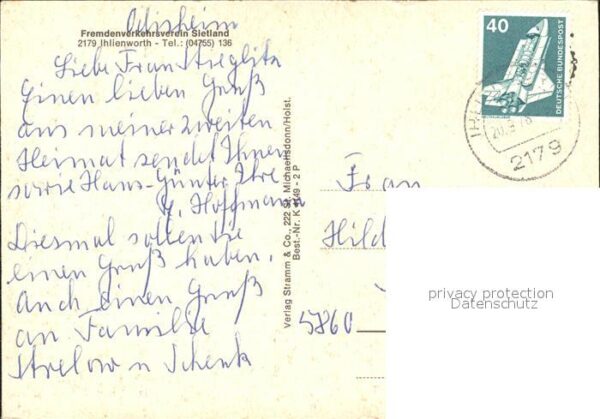 Fremdenverkehrsverein Sietland
2179 Ihlienworth - Tel.: (04755) 136
Liebe Frau Streglitz
Einen lieben Gruß
aus meiner zweiten
Heimat sendet Ihnen
sowie Hans-Günter Ihre
Hoffmann
Diesmal sollen Sie
einen Gruß haben.
Auch einen Gruß
an Familie
Strelow u Schenk
Verlag Stramm & Co., 222 St. Michaelisdonn/Holst.
Best.-Nr. K 49 - 2 P
40
DEUTSCHE BUNDESPOST
20.9.78
2179
Frau
Hild
5860
privacy protection
Datenschutz